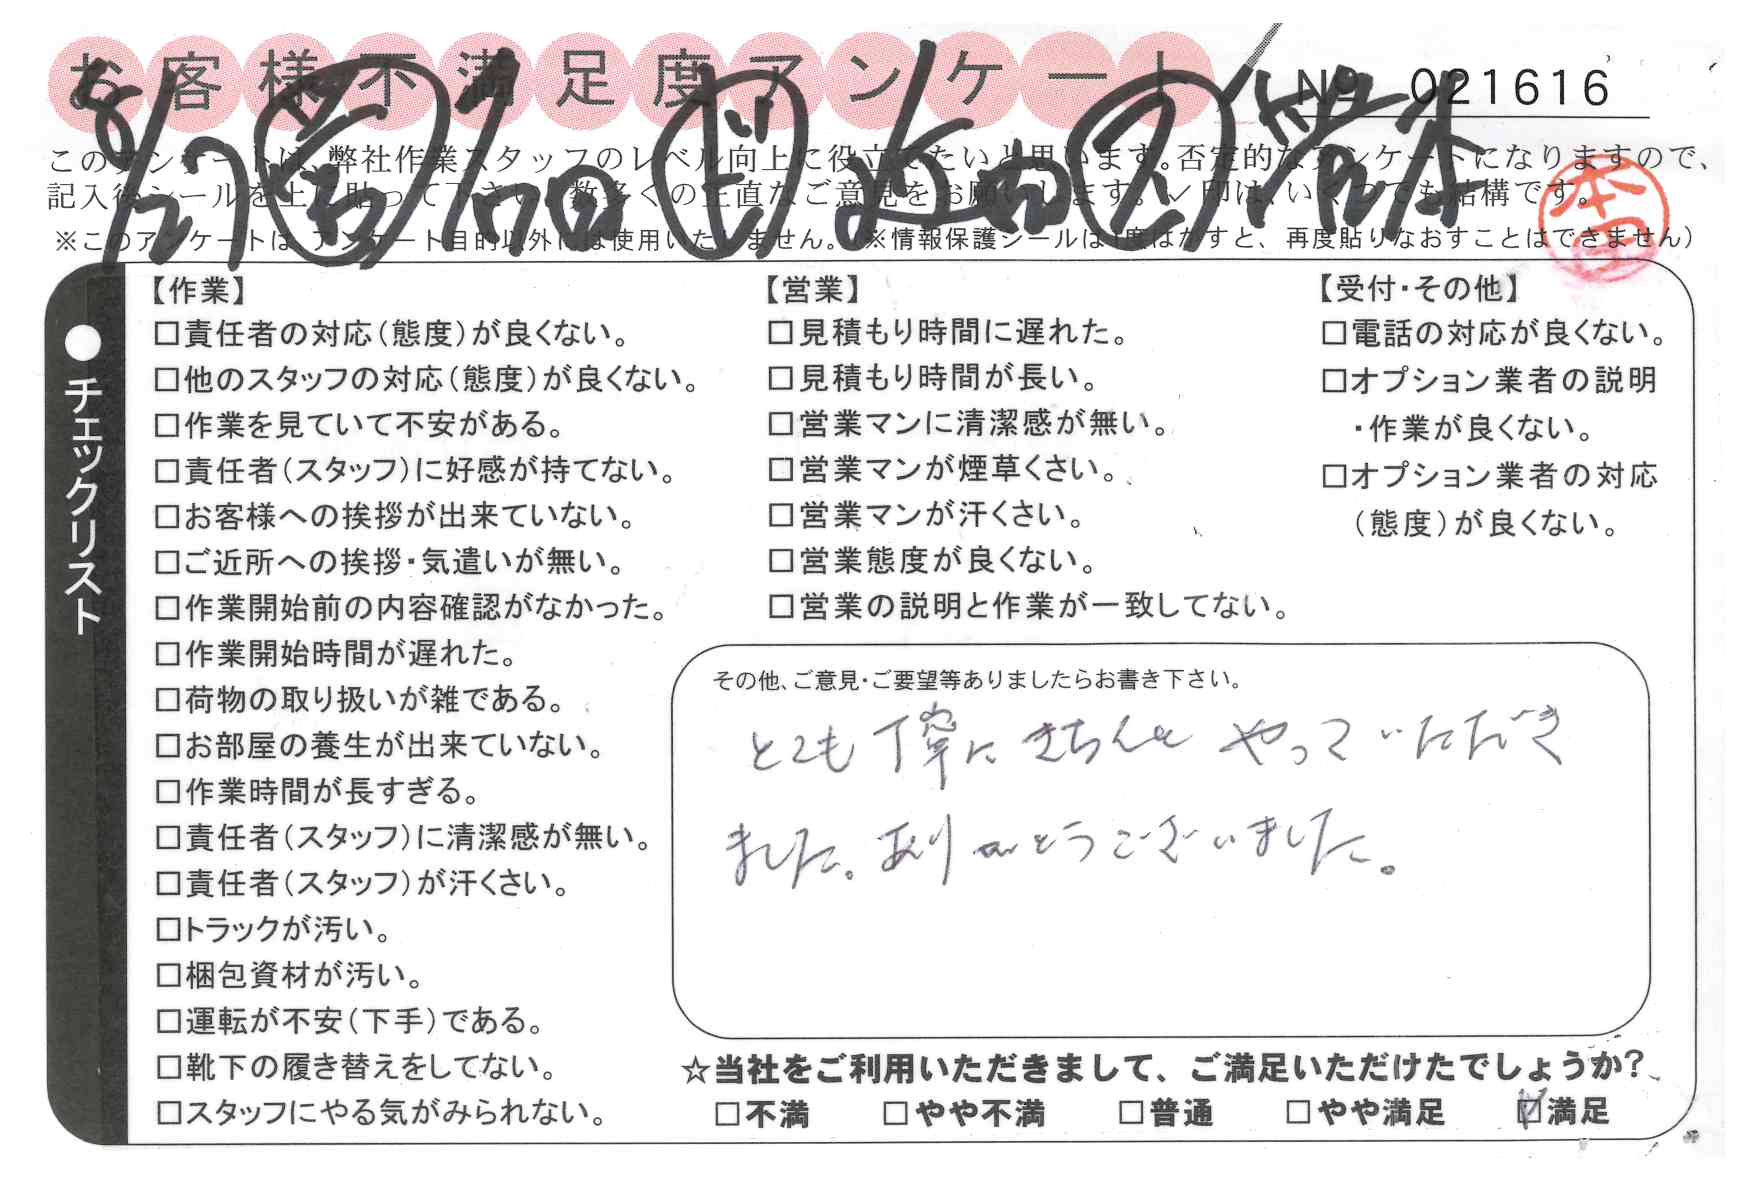 お客様不満足度アンケート
№ 021616
このアンケートは、弊社作業スタッフのレベル向上に役立てたいと思います。否定的なアンケートになりますので、
記入後シールを上に貼って下さい。数多くの正直なご意見をお願いします。✓印は、いくつでも結構です。
※このアンケートは、アンケート目的以外には使用いたしません。(※情報保護シールは1度はがすと、再度貼りなおすことはできません)
●チェックリスト
【作業】
□責任者の対応(態度)が良くない。
□他のスタッフの対応(態度)が良くない。
□作業を見ていて不安がある。
□責任者(スタッフ)に好感が持てない。
□お客様への挨拶が出来ていない。
□ご近所への挨拶・気遣いが無い。
□作業開始前の内容確認がなかった。
□作業開始時間が遅れた。
□荷物の取り扱いが雑である。
□お部屋の養生が出来ていない。
□作業時間が長すぎる。
□責任者(スタッフ)に清潔感が無い。
□責任者(スタッフ)が汗くさい。
□トラックが汚い。
□梱包資材が汚い。
□運転が不安(下手)である。
□靴下の履き替えをしてない。
□スタッフにやる気がみられない。
【営業】
□見積もり時間に遅れた。
□見積もり時間が長い。
□営業マンに清潔感が無い。
□営業マンが煙草くさい。
□営業マンが汗くさい。
□営業態度が良くない。
□営業の説明と作業が一致してない。
【受付・その他】
□電話の対応が良くない。
□オプション業者の説明
・作業が良くない。
□オプション業者の対応
(態度)が良くない。
その他、ご意見・ご要望等ありましたらお書き下さい。
とても丁寧にきちんとやっていただき
ました。ありがとうございました。
☆当社をご利用いただきまして、ご満足いただけたでしょうか?
□不満 □やや不満 □普通 □やや満足 ☑満足